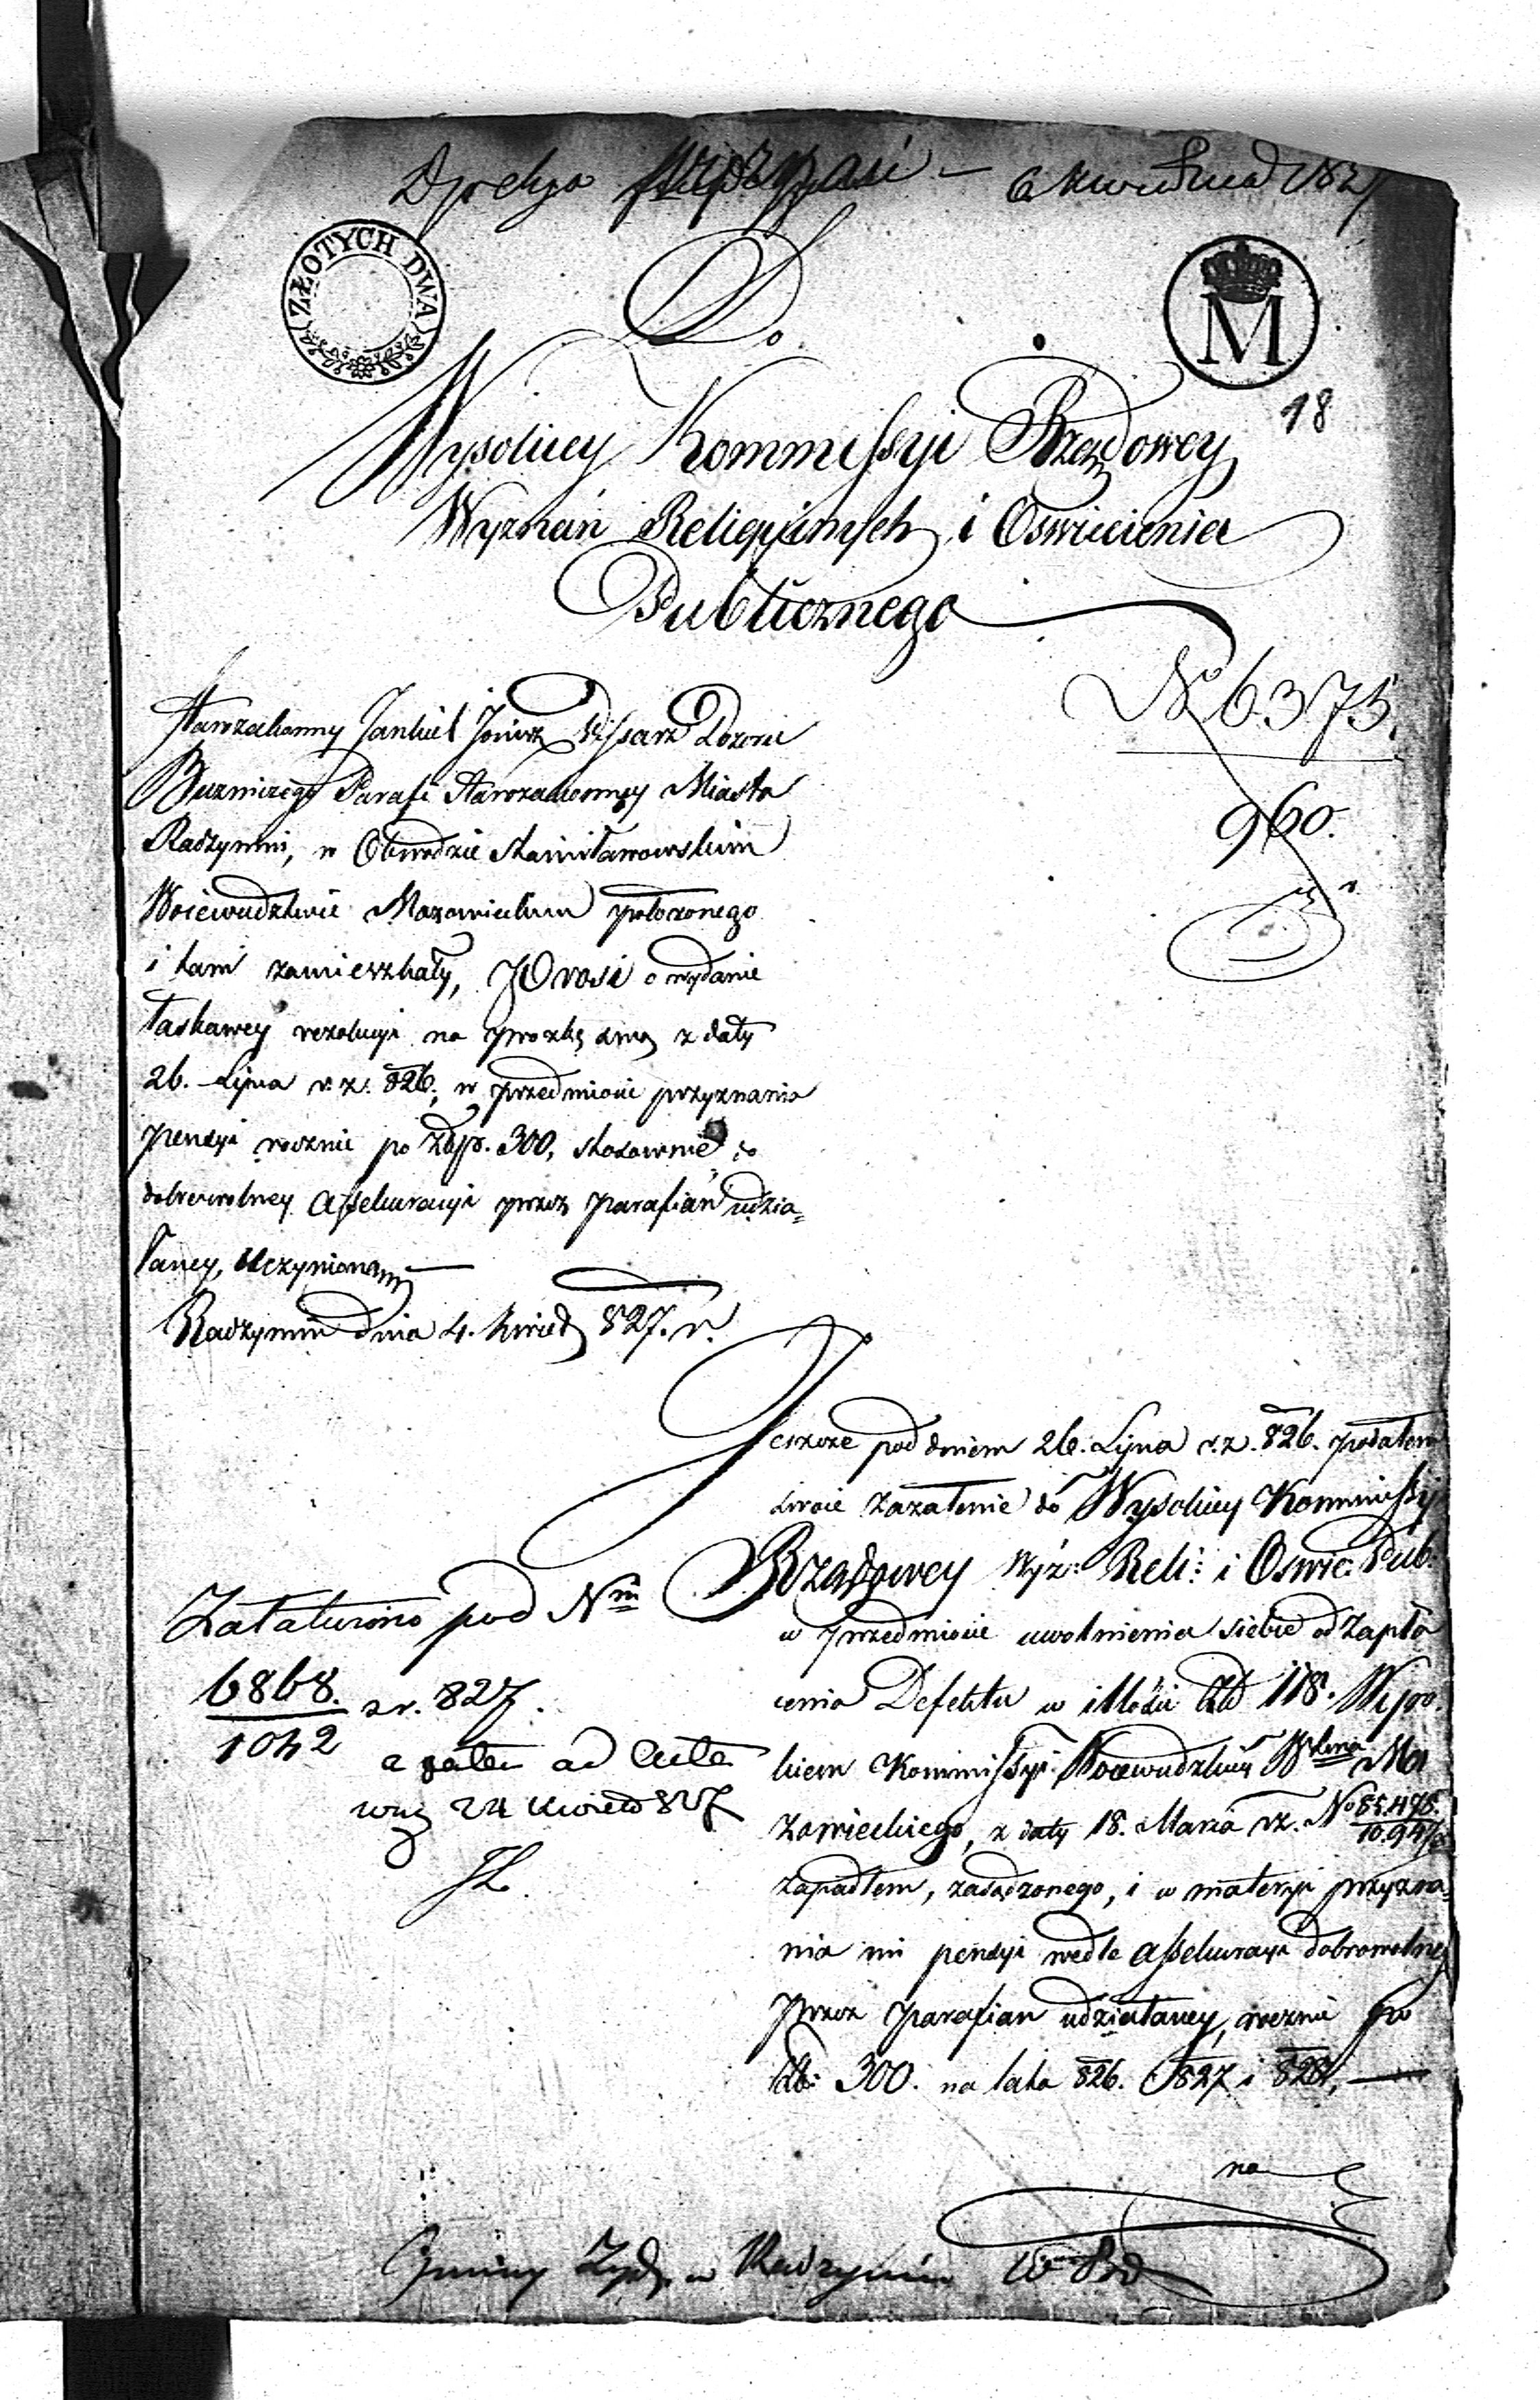 6 Kwietnia 1827
ZŁOTYCH DWA
M
18
Do
Wysokiey Kommissyi Rządowey
Wyznań Religiynych i Oswiecenia
Publicznego
No 6375.
960.
Starozakonny Jankiel Pissarz Dozoru
Buzniczego Parafi Starozakonney Miasta
Radzymin, w Obwodzie Stanisławowskim
Woiewudztwie Mazowieckim położonego
i tam zamieszkały, Prosi o wydanie
łaskawey rezolucyi na prozbę swą z daty
26. Lipca r. z. 826, w przedmiocie przyznania
pensyi rocznie po Złp. 300, stosownie do
dobrowolney assekuracyi przez parafian udzia=
łaney, uczynioną
Radzymin dnia 4. Kwiet 827. r.
Jeszcze pod dniem 26. Lipca r. z. 826. podałem
swoie zazalenie do Wysokiey Kommissyi
Rządowey Wyz: Reli: i Oswie: Pub.
w przedmiocie uwolnienia siebie od zapła
cenia Defektu w illości Zł 118. Wyro
kiem Kommissyi Woiewudzkiey Wdztwa Ma
zowieckiego, z daty 18. Marca r. z. No
zapadłem, zasądzonego, i w materyi przyzna
nia mi pensyi wedle assekuracyi dobrowolney
przez parafian udziałaney, rocznie po
Zł: 300. na lata 826. 827 i 828,
na
Zatatwiono pod Nm
6868. z r. 827.
1042
a zatem ad acta
24 Kwiet 827
JL
Gminy Żyd. w Radzyminie